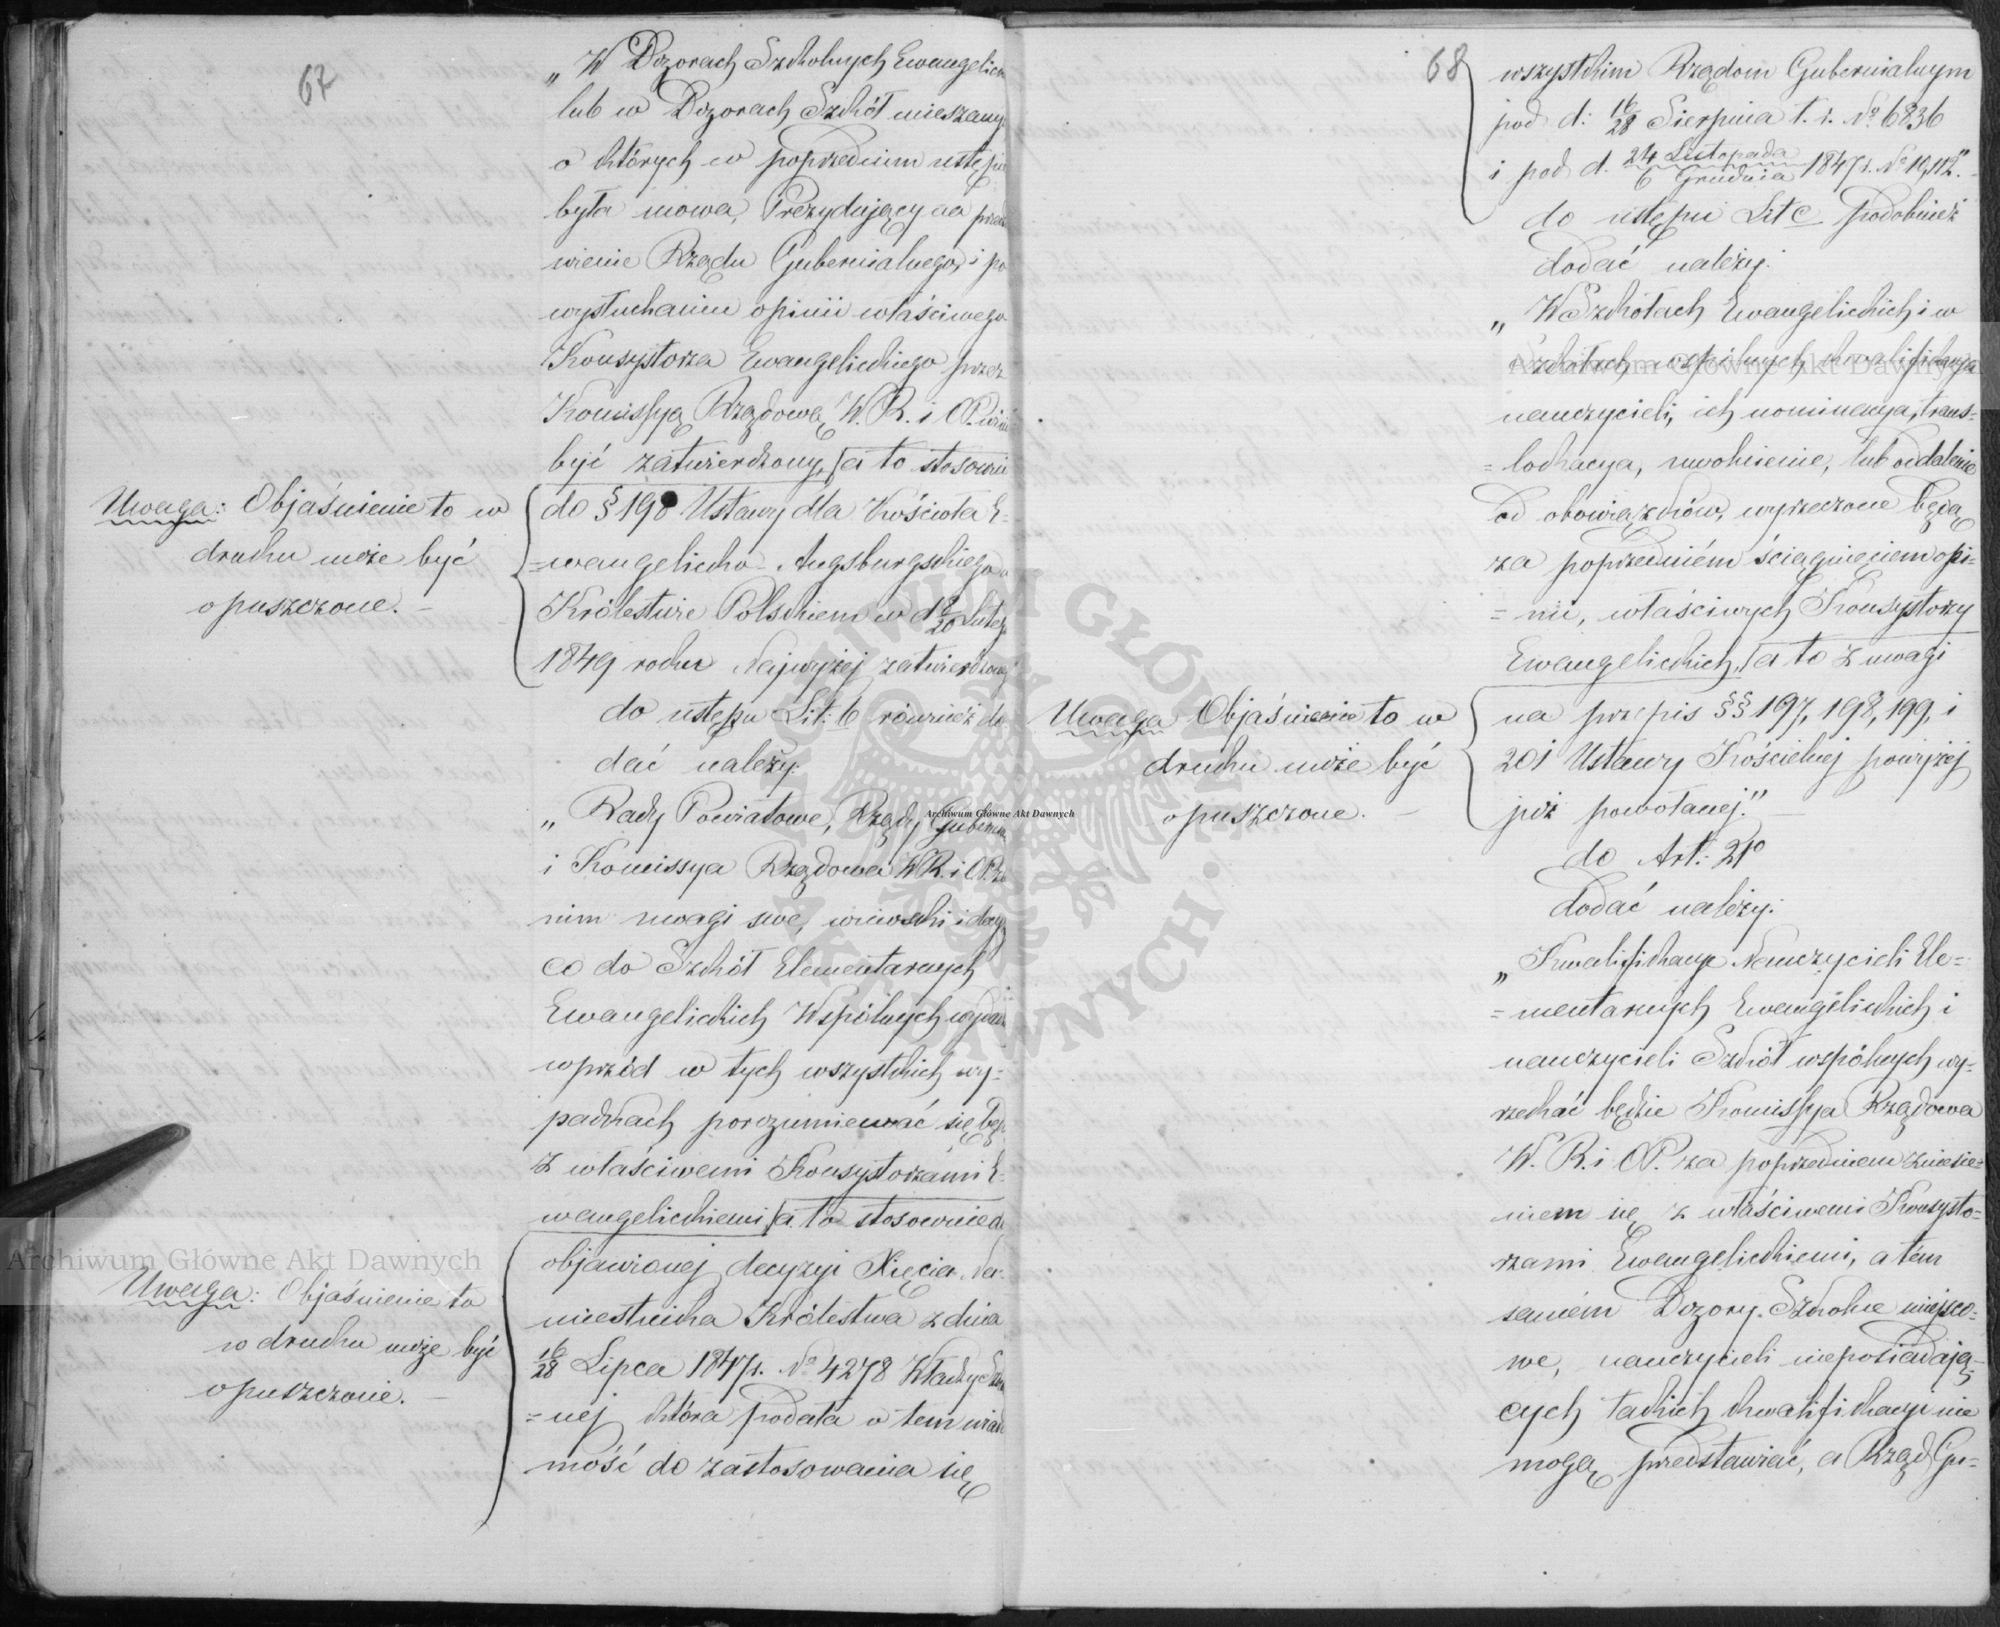 67
„W Dozorach Szkolnych Ewangelick
lub w Dozorach Szkół mieszany
o których w poprzednim ustępie
była mowa, Prezydujący na przed
wienie Rządu Gubernialnego, i po
wysłuchaniu opinii właściwego
Konsystorza Ewangelickiego przez
Komissyą Rządową W. R. i O. P. winien
być zatwierdzony, a to stosownie
do § 198 Ustawy dla Kościoła E-
=wangelicko-Augsburgskiego w
Królestwie Polskiem w d 8/20 Luteg
1849 roku Najwyżej zatwierdzonej
Uwaga: Objaśnienie to w
druku może być
opuszczone. –
do ustępu Lit: b również do
dać należy:
„Rady Powiatowe, Rządy Gubern
i Komissya Rządowa W R. i O P. za
nim uwagi swe, wnioski i decy
co do Szkół Elementarnych
Ewangelickich Wspólnych wydadzą
wprzód w tych wszystkich wy-
padkach porozumiewać się będą
z właściwemi Konsystorzami E-
wangelickiemi a to stosownie do
objawionej decyzyi Xięcia Na-
miestnika Królestwa z dnia
16/28 Lipca 1847 r. No 4278 Władzy Szkol
=nej która podała o tem wiado
mość do zastosowania się
Uwaga: Objaśnienie to
w druku może być
opuszczone. –
68
wszystkim Rządom Gubernialnym
pod d: 16/28 Sierpnia t. r. No 6836
i pod d. 24 Listopada/6 Grudnia 1847 r. No 19,112."
do ustępu Lit c podobnież
dodać należy:
„W Szkołach Ewangelickich i w
Szkołach wspólnych kwalifikacya
nauczycieli, ich nominacya, trans-
=lokacya, uwolnienie, lub oddalenie
od obowiązków, wyrzeczone będą
za poprzedniém ściągnieniem opi-
=nii, właściwych Konsystorzy
Ewangelickich, a to z uwagi
na przepis §§ 197, 198, 199, i
201 Ustawy Kościelnej powyżej
już powołanej." –
Uwaga Objaśnienie to w
druku może być
opuszczone. –
do Art: 21o
dodać należy:
„Kwalifikacye Nauczycieli Ele=
=mentarnych Ewangelickich i
nauczycieli Szkół wspólnych wy-
rzekać będzie Komissya Rządowa
W. R. i O. P. za poprzedniem zniesie=
niem się z właściwemi Konsysto=
rzami Ewangelickiemi, a tém
samém Dozory Szkolne miejsco=
we, nauczycieli nieposiadają=
cych takich kwalifikacyi nie
mogą przedstawiać, a Rząd Gu=
Archiwum Główne Akt Dawnych
Archiwum Główne Akt Dawnych
Archiwum Główne Akt Dawnych